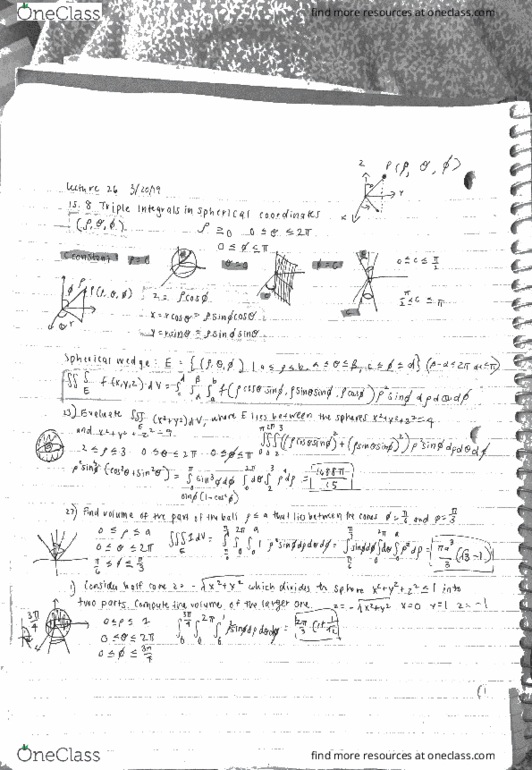 OneClass
find more resources at oneclass.com
z P(ρ, θ, ϕ)
Lecture 26 3/20/19
15.8 Triple Integrals in Spherical coordinates
(ρ,θ,ϕ) ρ ≥ 0 0 ≤ θ ≤ 2π
0 ≤ ϕ ≤ π
C constant ρ = c θ = c ϕ = c 0 ≤ c ≤ π/2
π/2 ≤ c ≤ π
P(ρ,θ,ϕ) z = ρcosϕ
x = rcosθ = ρsinϕcosθ
y = rsinθ = ρsinϕsinθ
Spherical wedge: E = {(ρ,θ,ϕ) | a ≤ ρ ≤ b, α ≤ θ ≤ β, c ≤ ϕ ≤ d}
∭E f(x,y,z) dV = ∫∫∫ f(ρcosθsinϕ, ρsinθsinϕ, ρcosϕ) ρ² sinϕ dρdθdϕ
23) Evaluate ∭ (x²+y²)dV, where E lies between the spheres x²+y²+z²=4
and x²+y²+z²=9
2 ≤ ρ ≤ 3 0 ≤ θ ≤ 2π 0 ≤ ϕ ≤ π
ρ²sin²ϕ(cos²θ+sin²θ) = ∫sin³ϕdϕ ∫dθ ∫ρ⁴dρ = 1688π/15
sinϕ(1-cos²ϕ)
27) Find volume of the part of the ball ρ ≤ a that lies between the cones ϕ=π/6 and ϕ=π/3
0 ≤ ρ ≤ a
0 ≤ θ ≤ 2π
π/6 ≤ ϕ ≤ π/3
∭1dV = ∫∫∫ 1 ρ²sinϕdρdθdϕ = ∫sinϕdϕ∫dθ∫ρ²dρ = πa³/3 (√3-1)
1) Consider half cone z = -√x²+y² which divides the sphere x²+y²+z² ≤ 1 into
two parts. Compute the volume of the larger one. z = -√x²+y² x=0 y=1 z=-1
3π/4
0 ≤ ρ ≤ 2
0 ≤ θ ≤ 2π
0 ≤ ϕ ≤ 3π/4
OneClass
find more resources at oneclass.com